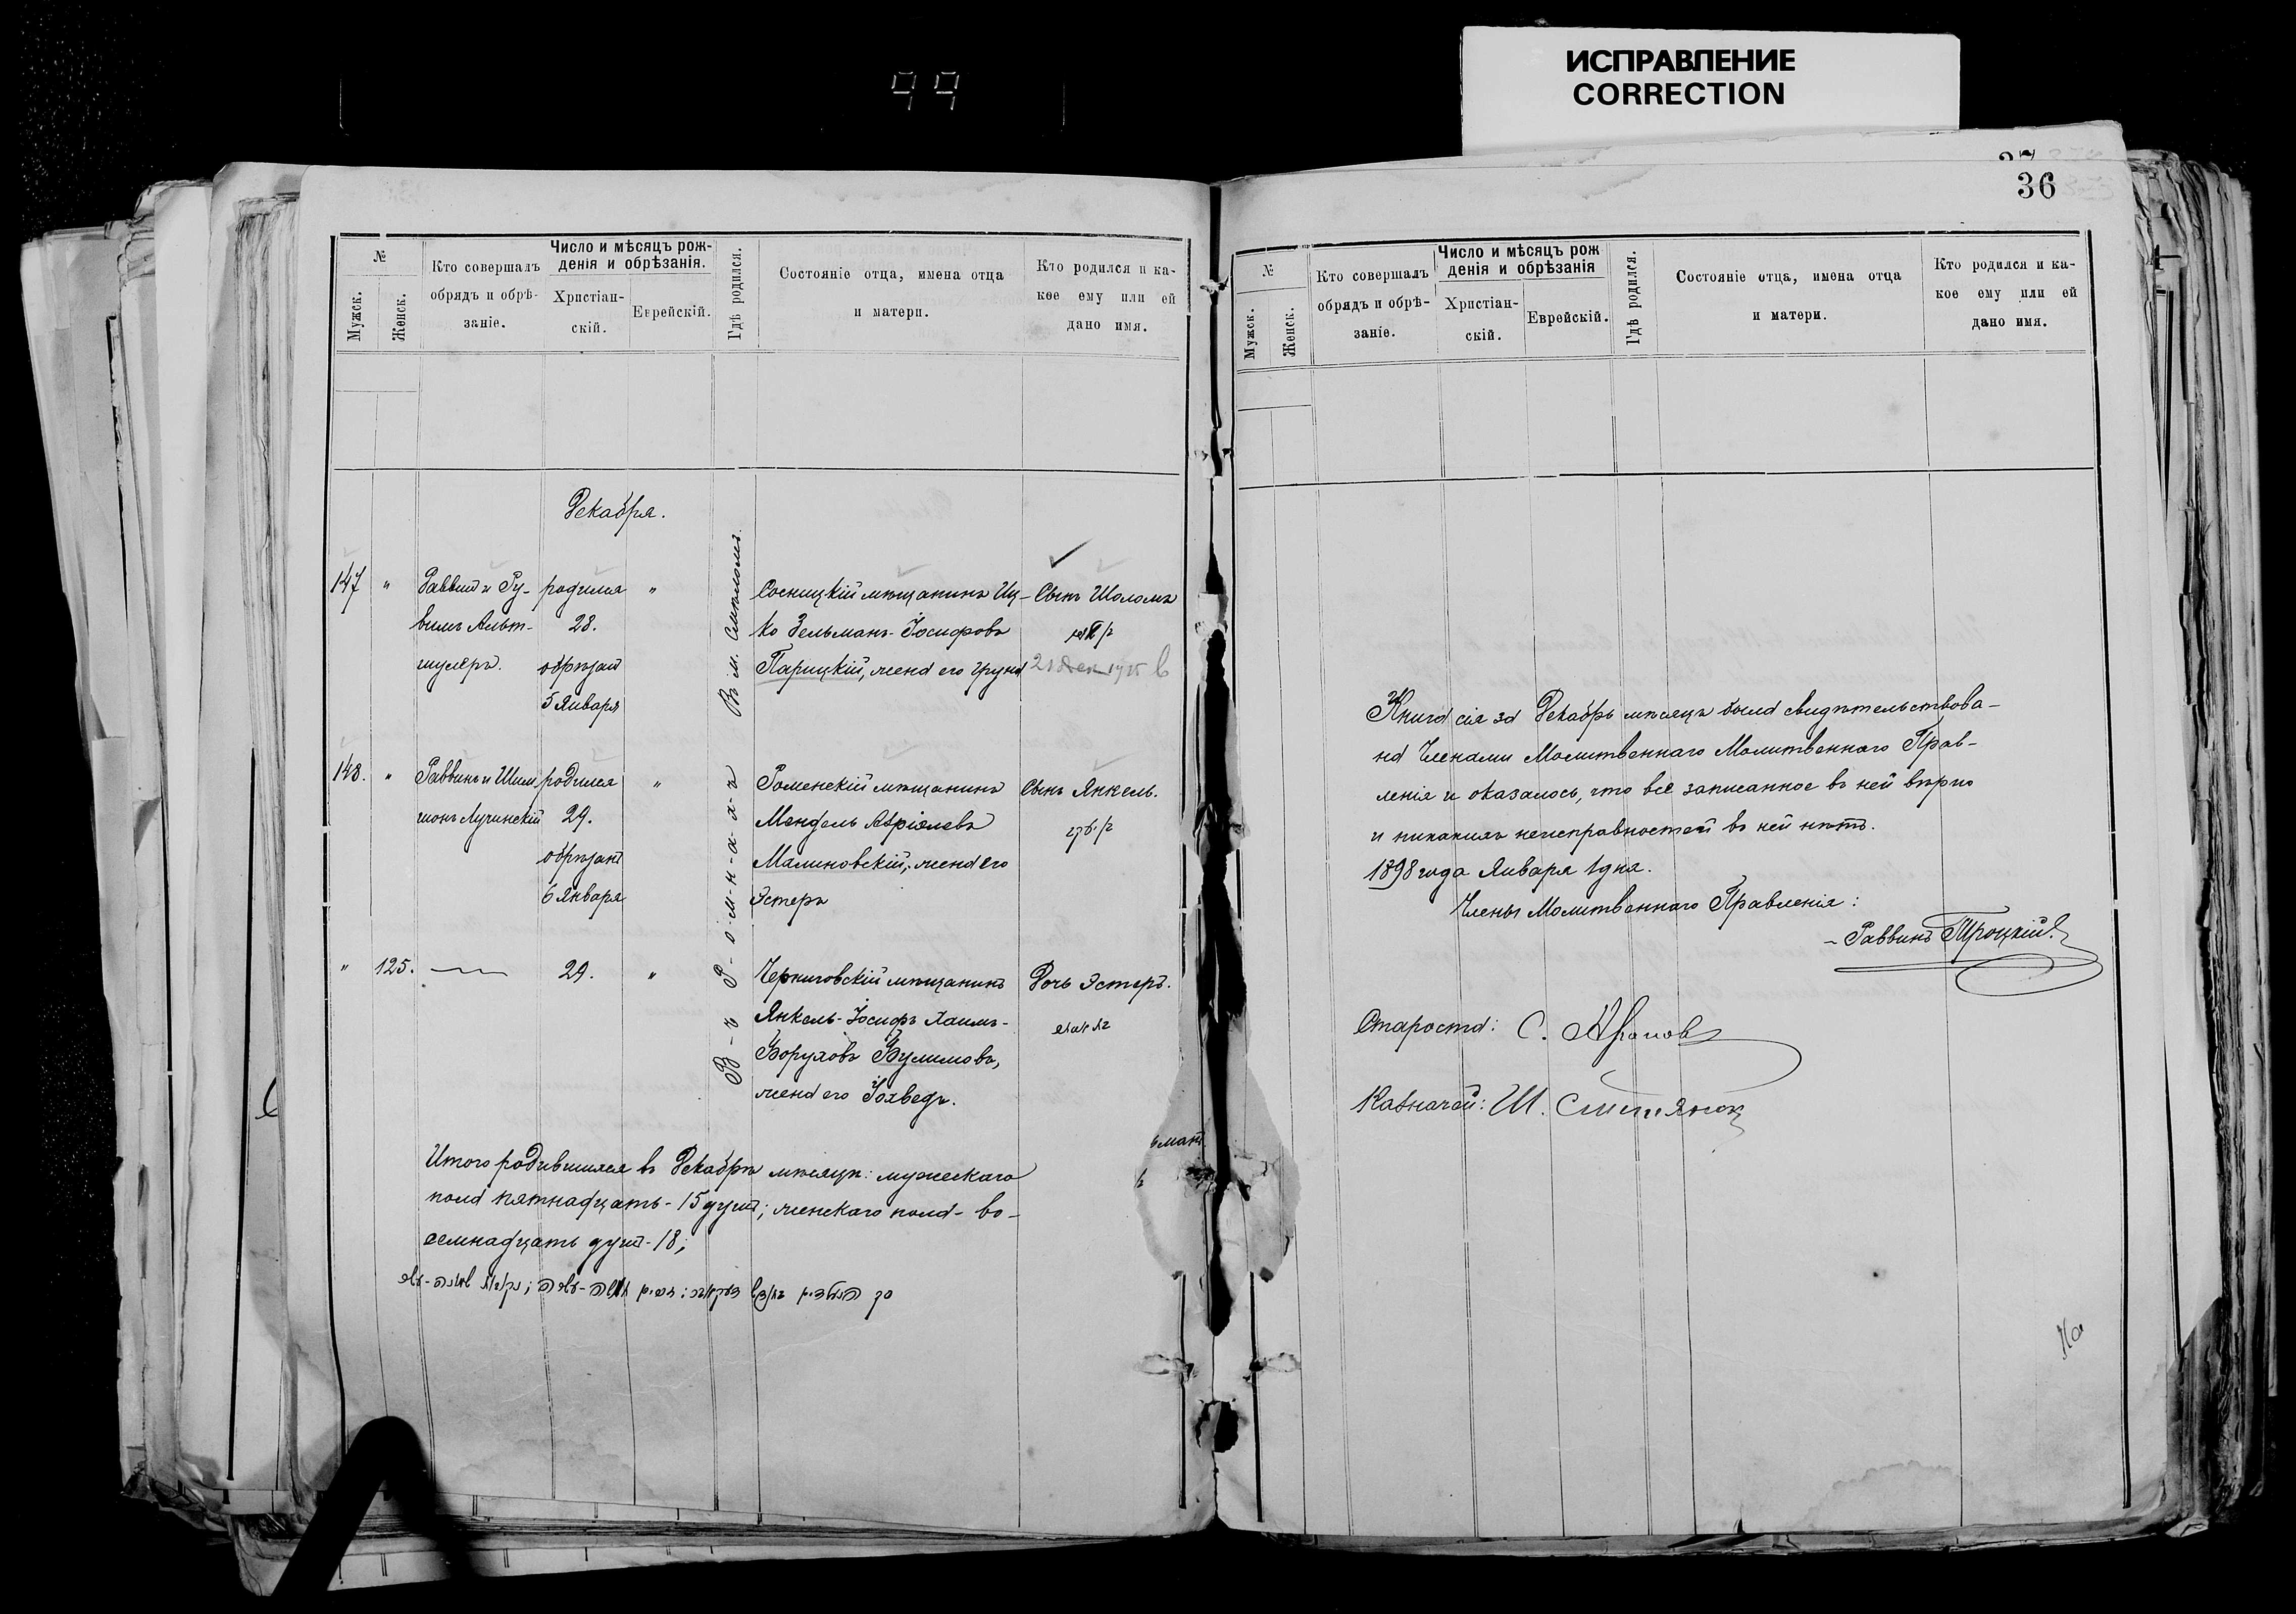 ИСПРАВЛЕНИЕ
CORRECTION
99
36
№
Мужск.
Женск.
Кто совершалъ
обрядъ и обрѣ-
заніе.
Число и мѣсяцъ рож-
денія и обрѣзанія.
Христіан-
скій.
Еврейскій.
Гдѣ родился.
Состояніе отца, имена отца
и матери.
Кто родился и ка-
кое ему или ей
дано имя.
Декабря.
147
"
Раввинъ и Ру-
вимъ Альт-
шулеръ.
родился
28.
обрѣзанъ
5 Января
"
Въ м.
Сосницкій мѣщанинъ Иц-
ко Зельманъ-Іосифовъ
Парицкій, жена его Груня
Сынъ Шоломъ
148.
"
Раввинъ и Шим-
шонъ Лучинскій
родился
29.
обрѣзанъ
6 Января
"
Роменскій мѣщанинъ
Мендель Азріелевъ
Малиновскій, жена его
Эстеръ
Сынъ Янкель.
"
125.
29.
"
В-ъ Р-о-м-н-а-х-ъ
Черниговскій мѣщанинъ
Янкель-Іосифъ Хаимъ-
Боруховъ Булимовъ,
жена его Іохведъ.
Дочь Эстеръ.
Итого родившихся въ Декабрѣ мѣсяцѣ: мужескаго
пола пятнадцать - 15 душъ; женскаго пола - во-
семнадцать душъ - 18;
№
Мужск.
Женск.
Кто совершалъ
обрядъ и обрѣ-
заніе.
Число и мѣсяцъ рож
денія и обрѣзанія
Христіан-
скій.
Еврейскій.
Гдѣ родился.
Состояніе отца, имена отца
и матери.
Кто родился и ка-
кое ему или ей
дано имя.
Книга сія за Декабрь мѣсяцъ была свидѣтельствова-
на Членами Молитвеннаго Молитвеннаго Прав-
ленія и оказалось, что все записанное въ ней вѣрно
и никакихъ неисправностей въ ней нѣтъ.
1898 года Января 1 дня.
Члены Молитвеннаго Правленія:
Раввинъ Троцкій.
Староста: С.
Казначей: Ш.